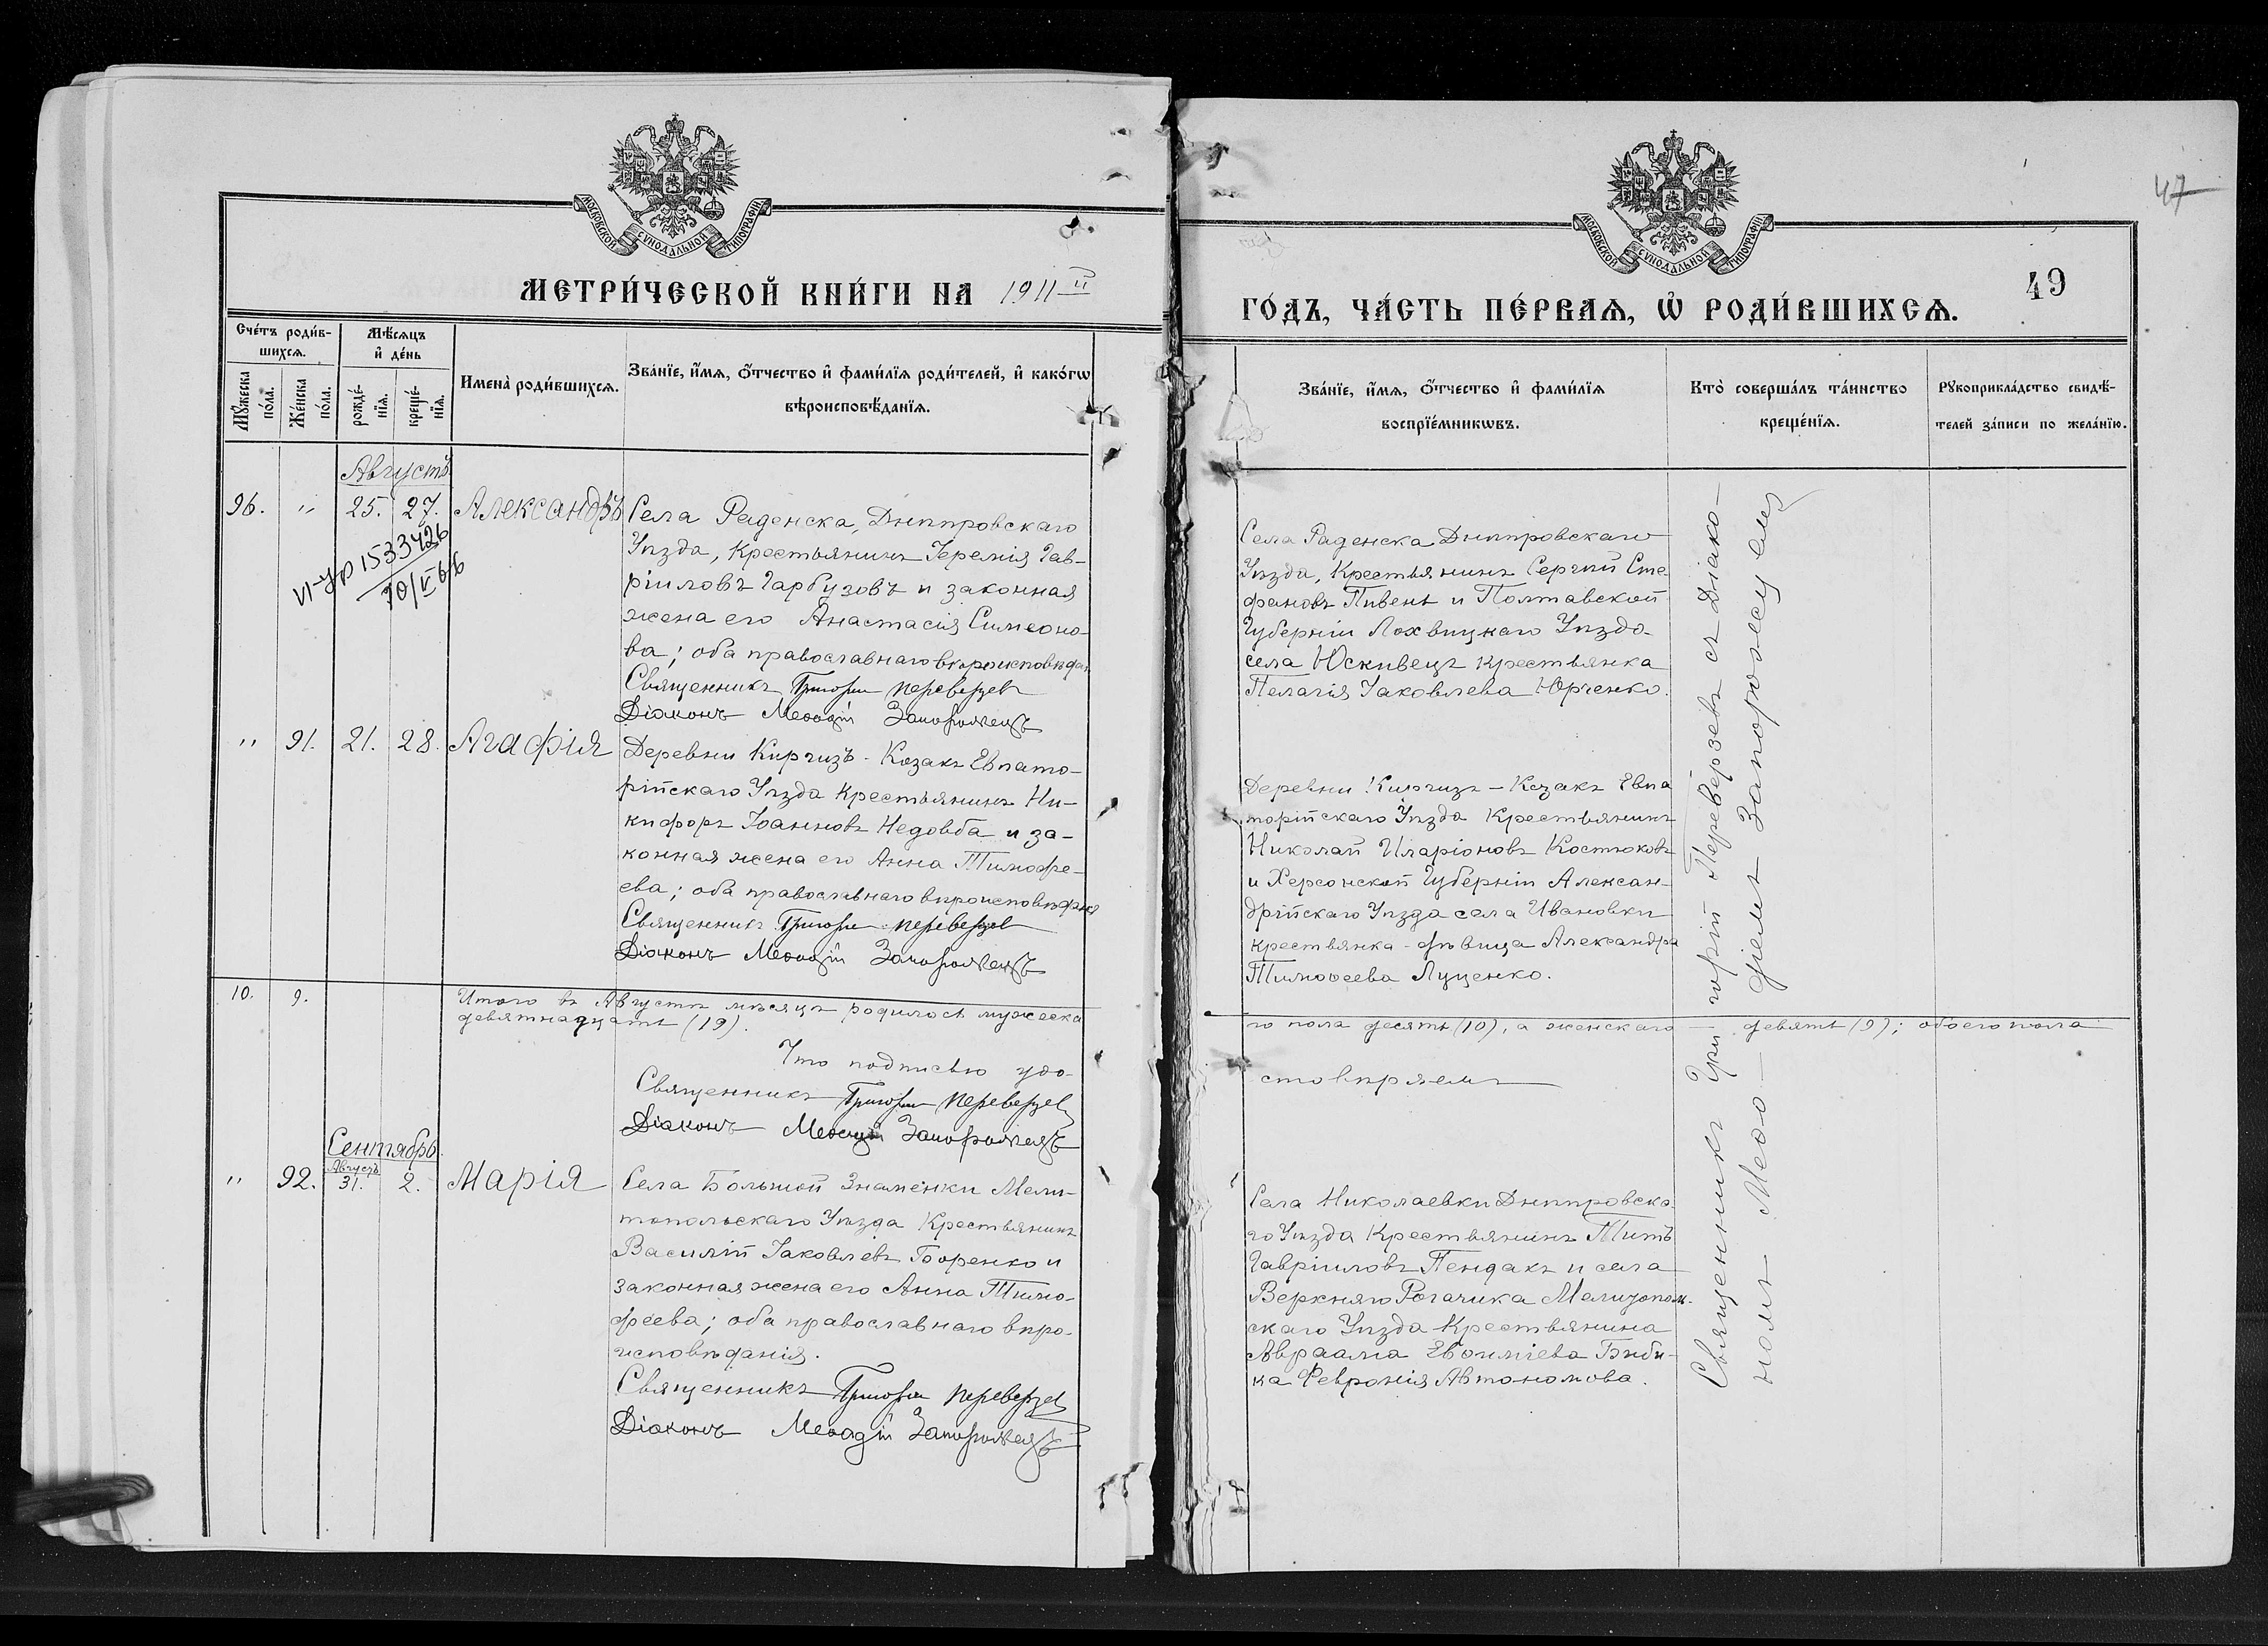 МОСКОВСКОЙ СУНОДАЛЬНОЙ ТИПОГРАФІИ
МЕТРИ́ЧЕСКОЙ КНИ́ГИ НА 1911
Сче́тъ роди́в-
шихсѧ.
Мѣ́сѧцъ
и҆ де́нь
Мꙋ́жеска
по́ла.
Же́нска
по́ла.
рожде́-
нїѧ.
креще́-
нїѧ.
Имена̀ роди́вшихсѧ.
Зва́нїе, и҆́мѧ, ѻ҆́тчество и҆ фами́лїѧ роди́телей, и҆ како́гѡ
вѣроисповѣ́данїѧ.
Августъ
96. " 25. 27. Александръ
1533426
30/V 66
Села Раденска, Днѣпровскаго
Уѣзда, крестьянинъ Іеремія Гав-
ріиловъ Гарбузовъ и законная
жена его Анастасія Симеоно-
ва; оба православнаго вѣроисповѣдан.
Священникъ Григорій Переверзевъ
Діаконъ Меѳодій Запорожецъ
" 91. 21. 28. Агафія
Деревни Киргизъ-Козакъ Евпато-
рійскаго Уѣзда крестьянинъ Ни-
кифоръ Іоанновъ Недовба и за-
конная жена его Анна Тимофе-
ева; оба православнаго вѣроисповѣдан.
Священникъ Григорій Переверзевъ
Діаконъ Меѳодій Запорожецъ
10. 9. Итого въ Августѣ мѣсяцѣ родилось мужеска
девятнадцать (19).
Что подписью удо-
Священникъ Григорій Переверзевъ
Діаконъ Меѳодій Запорожецъ
Сентябрь.
Августъ
" 92. 31. 2. Марія
Села Большой Знаменки Мели-
топольскаго Уѣзда Крестьянинъ
Василій Іаковлевъ Боренко и
законная жена его Анна Тимо-
феева; оба православнаго вѣро-
исповѣданія.
Священникъ Григорій Переверзевъ
Діаконъ Меѳодій Запорожецъ
47
МОСКОВСКОЙ СУНОДАЛЬНОЙ ТИПОГРАФІИ
49
ГО́ДЪ, ЧА́СТЬ ПЕ́РВАѦ, Ѡ҆ РОДИ́ВШИХСѦ.
Зва́нїе, и҆́мѧ, ѻ҆́тчество и҆ фами́лїѧ
воспрїе́мникѡвъ.
Кто̀ соверша́лъ та́инство
креще́нїѧ.
Рꙋкоприкла́дство свидѣ́-
телей за́писи по жела́нїю.
Села Раденска Днѣпровскаго
Уѣзда, Крестьянинъ Сергѣй Сте-
фановъ Пивень и Полтавской
Губерніи Лохвицкаго Уѣзда
села Юсківецъ крестьянка
Пелагія Іаковлева Юрченко.
Деревни Киргизъ-Козакъ Евпа
торійскаго Уѣзда Крестьянинъ
Николай Иларіоновъ Костюковъ
и Херсонской Губерніи Алексан-
дрійскаго Уѣзда села Ивановки
крестьянка-дѣвица Александра
Тимоѳеева Луценко.
го пола десять (10), а женскаго — девять (9); обоего пола
стовѣряемъ
Села Николаевки Днѣпровска-
го Уѣзда Крестьянинъ Титъ
Гавріиловъ Пендакъ и села
Верхняго Рогачика Мелитополь-
скаго Уѣзда Крестьянина
Авраама Евѳиміева Биби-
ка Февронія Автономова.
Священникъ Григорій Переверзевъ съ Діако-
номъ Меѳо-діемъ Запорожецемъ